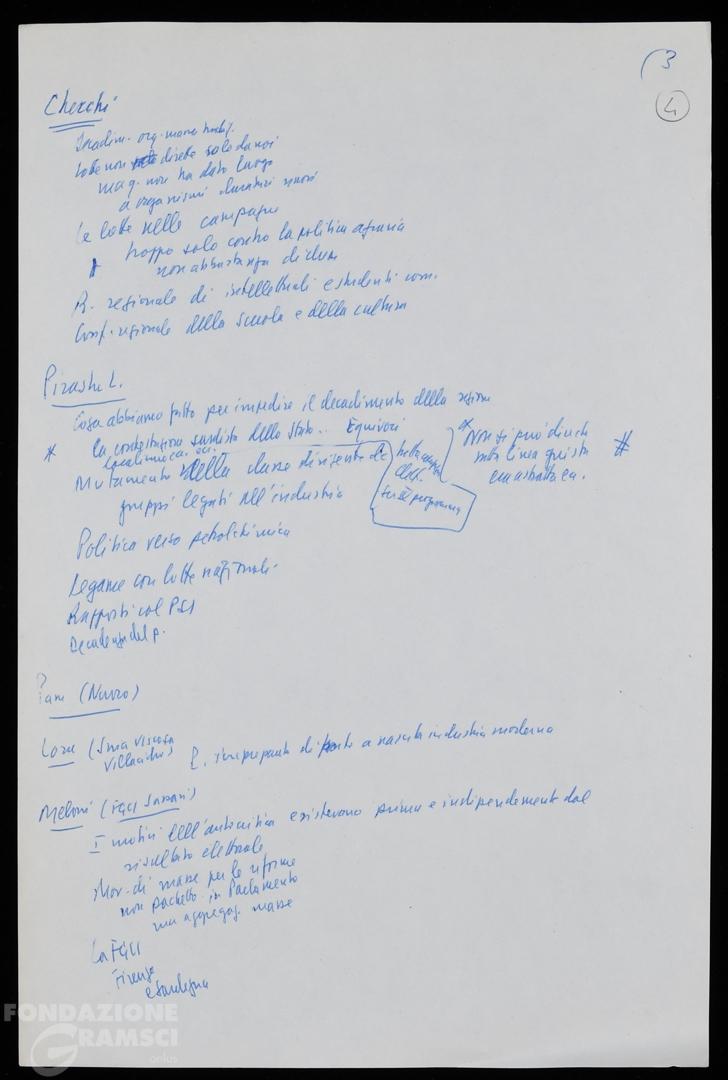 3
4
Cherchi
org. mane
lotte non dirette solo da noi
mag. non ha dato luogo
a organismi duraturi nuovi
Le lotte nelle campagne
troppo solo contro la politica agraria
non abbastanza
R. regionale di intellettuali e studenti com.
Conf. regionale della scuola e della cultura
Pirastu L.
Cosa abbiamo fatto per impedire il decadimento della regione
* la contestazione sardista dello Stato.. Equivoci
Mutamento della classe dirigente
gruppi legati all'industria
* Non si può
sulla linea giusta
ma astratta. #
Politica verso petrolchimica
Legame con lotte nazionali
Rapporti col PSI
Decadenza del p.
(Nuoro)
(Snia viscosa
Villacidro) P. impreparato di fronte a nascita industria moderna
Meloni (FGCI Sassari)
I motivi dell'autocritica esistevano prima e indipendentemente dal
risultato elettorale
Mov. di masse per le riforme
non pacchetto in Parlamento
ma masse
La FGCI
Firenze
e Sardegna
FONDAZIONE
GRAMSCI
onlus